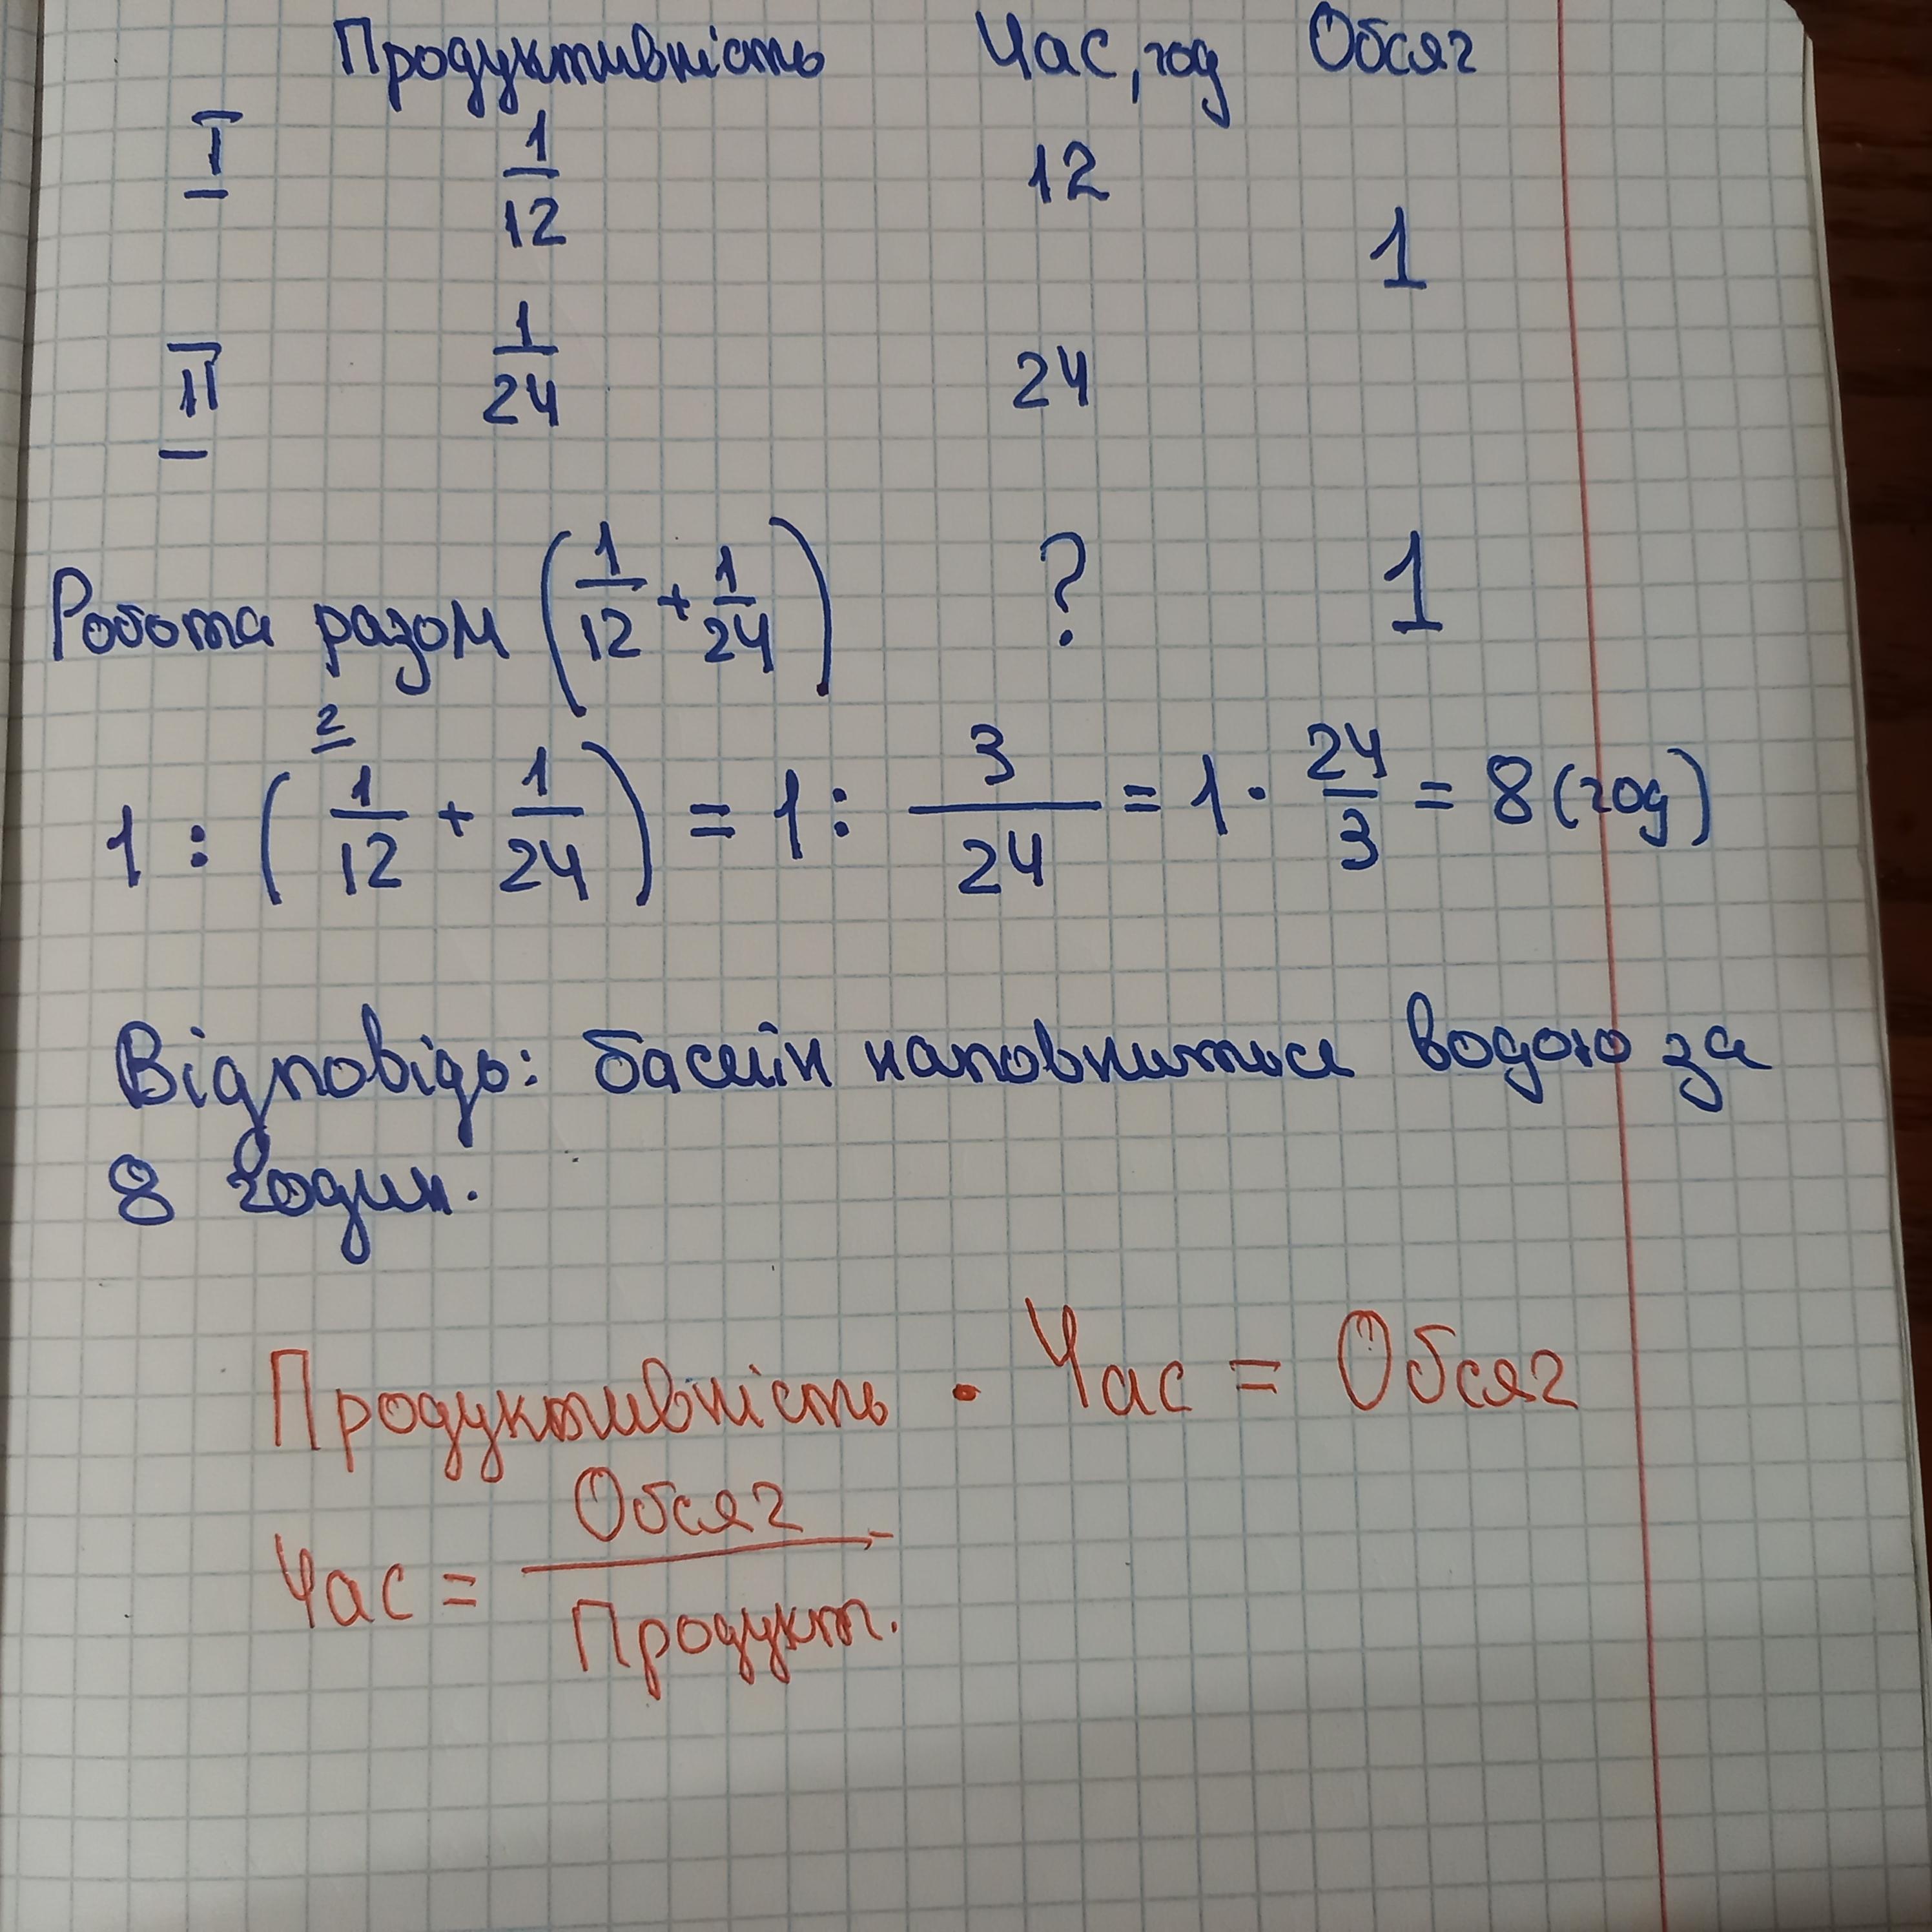 Продуктивність Час, год Обсяг
I 1/12 12
1
II 1/24 24
Робота разом (1/12 + 1/24) ? 1
2
1 : (1/12 + 1/24) = 1 : 3/24 = 1 · 24/3 = 8 (год)
Відповідь: басейн наповниться водою за
8 годин.
Продуктивність · Час = Обсяг
Час = Обсяг/Продукт.